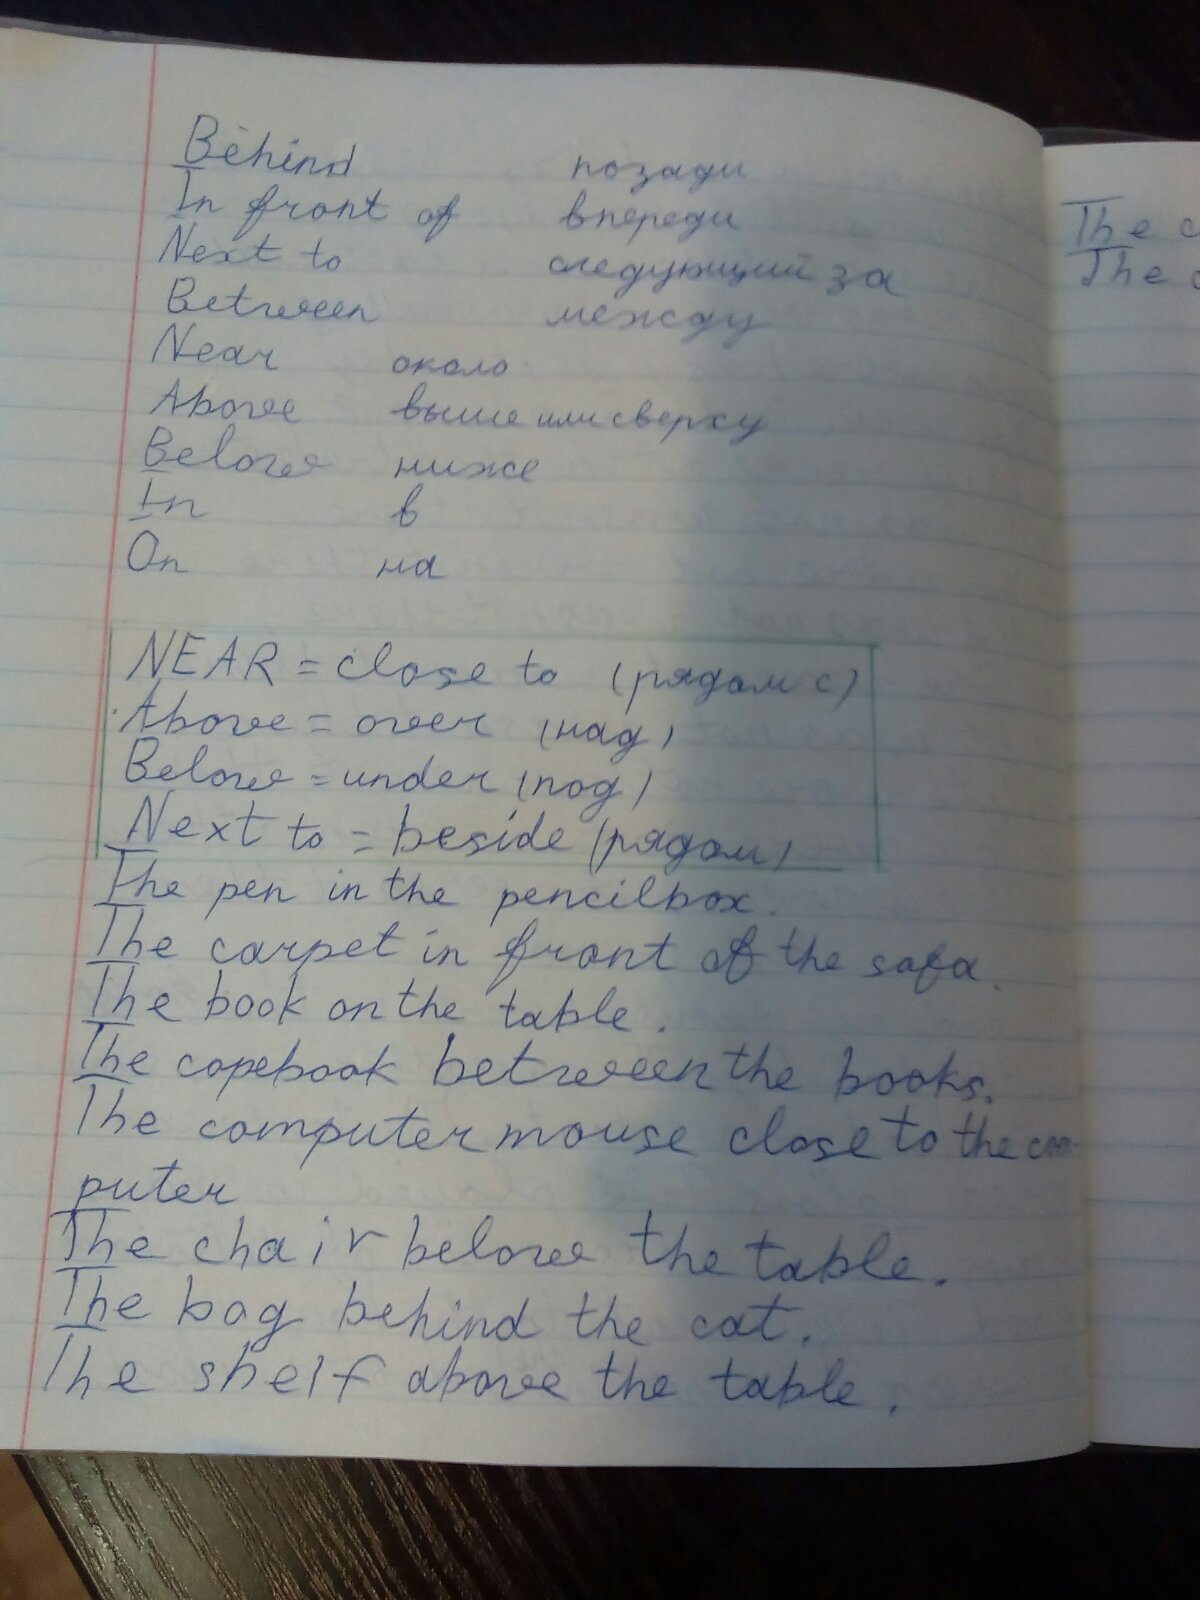 Behind позади
In front of впереди
Next to следующий за
Between между
Near около
Above выше или сверху
Below ниже
In в
On на
NEAR = close to (рядом с)
Above = over (над)
Below = under (под)
Next to = beside (рядом)
The pen in the pencilbox.
The carpet in front of the sofa.
The book on the table.
The copebook between the books.
The computer mouse close to the com-
puter
The chair below the table.
The bag behind the cat.
The shelf above the table.
The
The